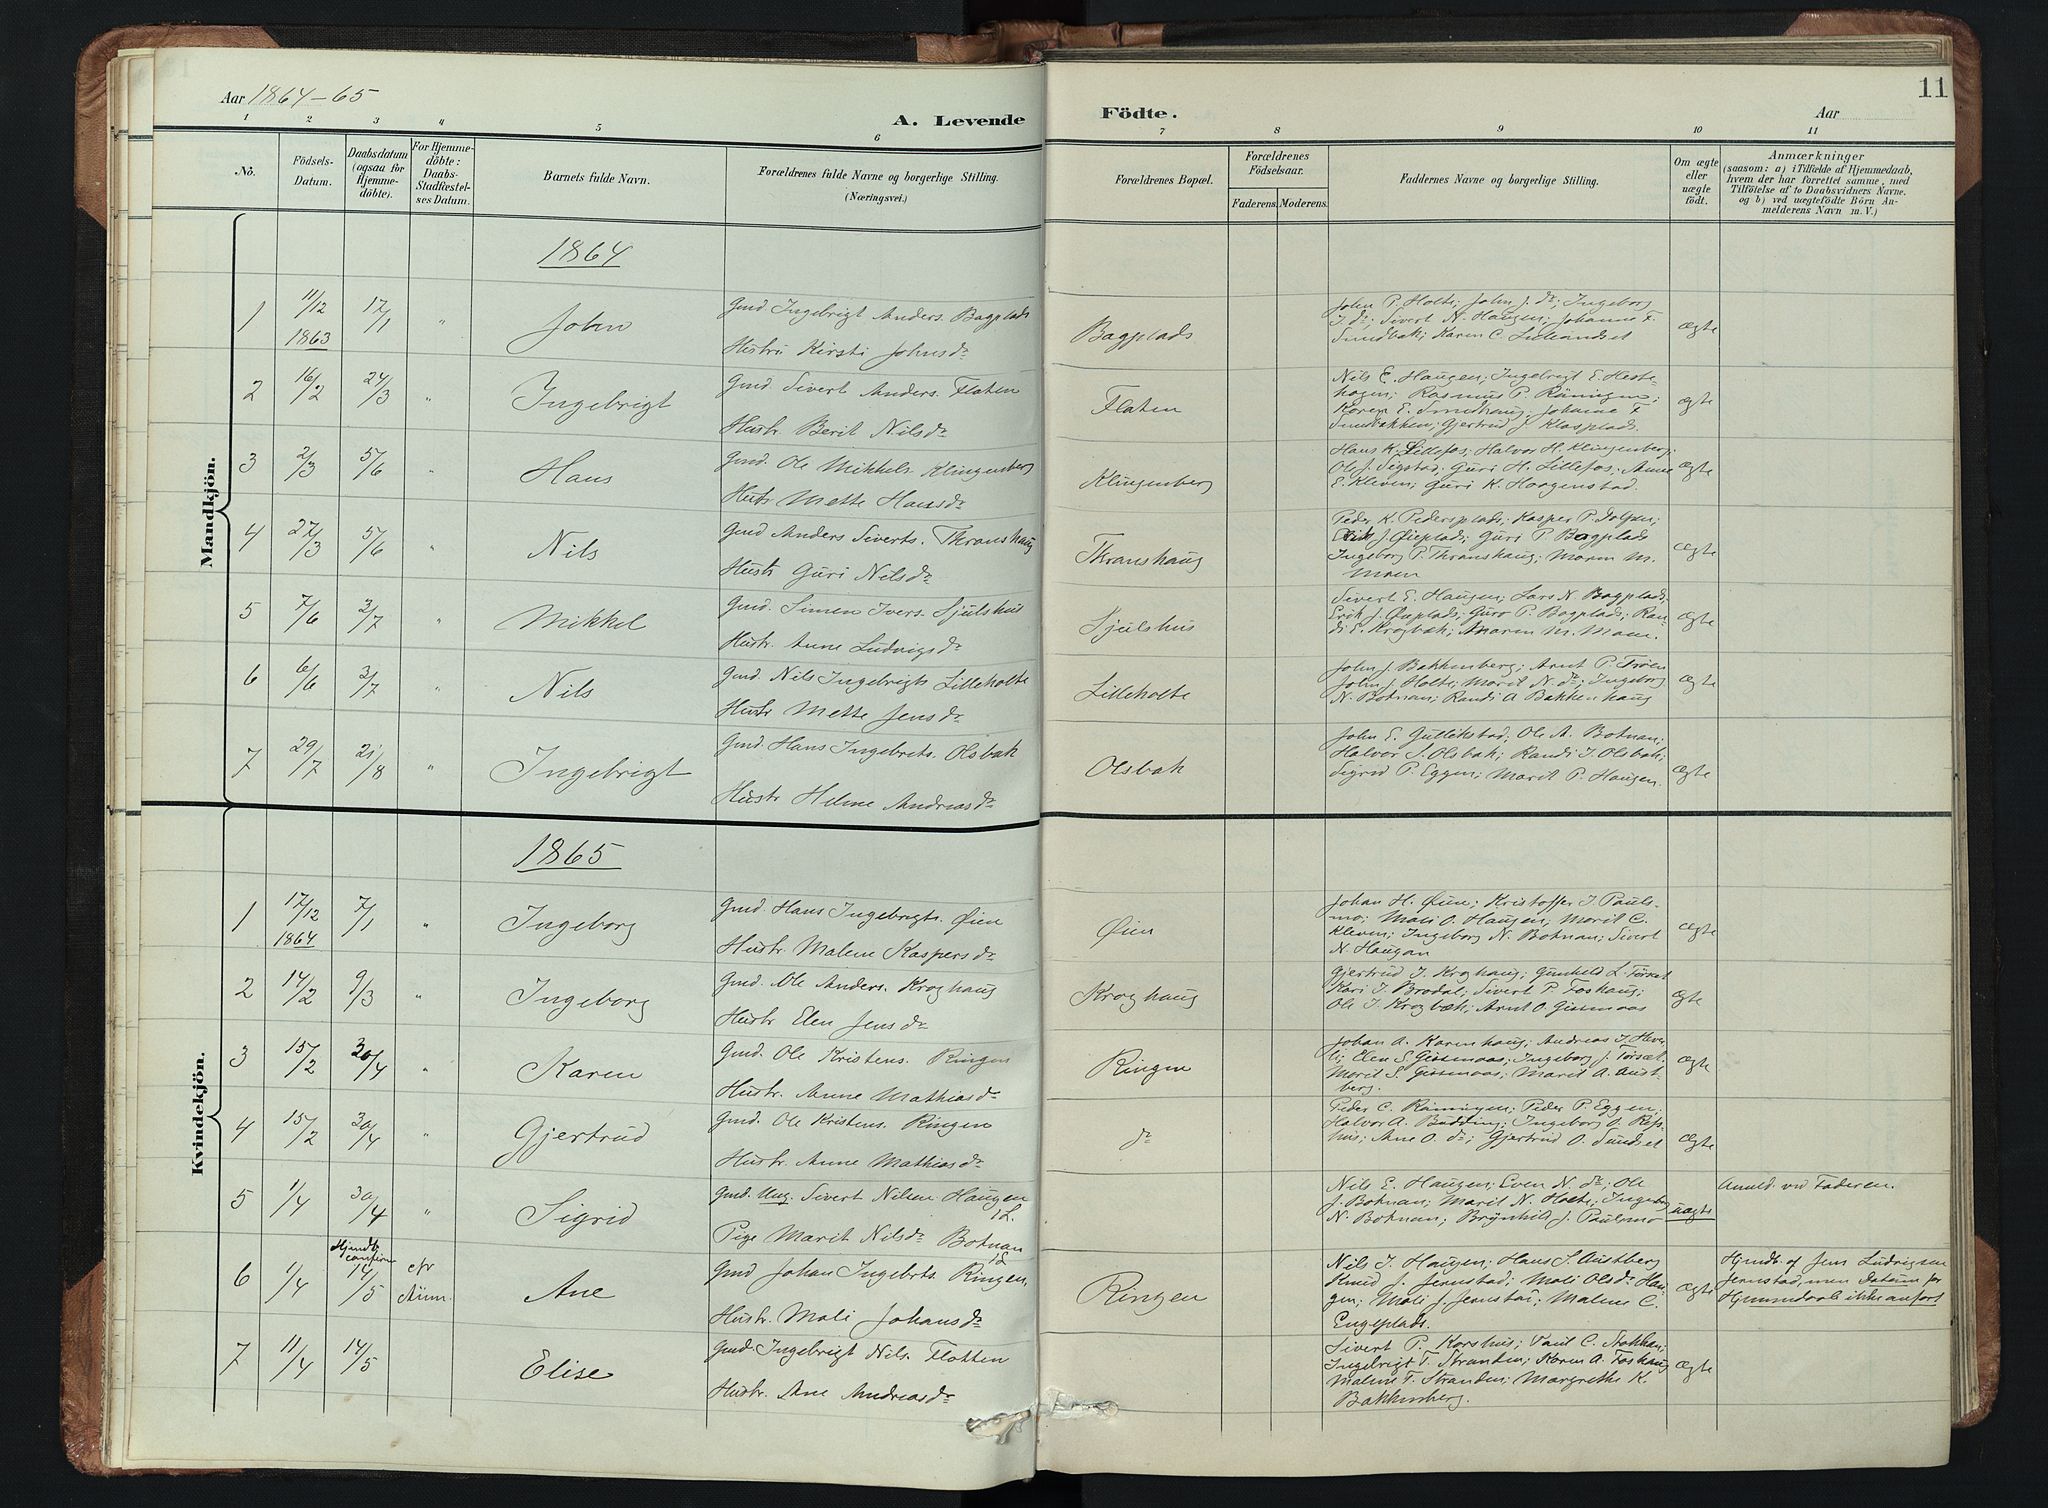 Aar 1864-65
A. Levende
Födte.
Aar
11
1 2 3 4 5 6 7 8 9 10 11
No.
Födsels-
Datum.
Daabsdatum
(ogsaa for
Hjemme-
döbte).
For Hjemme-
döbte:
Daabs-
Stadfæstel-
ses Datum.
Barnets fulde Navn.
Forældrenes fulde Navne og borgerlige Stilling.
(Næringsvei.)
Forældrenes Bopæl.
Forældrenes
Födselsaar.
Faderens. Moderens.
Faddernes Navne og borgerlige Stilling.
Om ægte
eller
uægte
födt.
Anmærkninger
(saasom: a) i Tilfælde af Hjemmedaab,
hvem der har forrettet samme, med
Tilföielse af to Daabsvidners Navne.
og b) ved uægtefödte Börn An-
melderens Navn m. V.)
Mandkjön.
1864
1 11/12 1863 17/1 " John
Gmd. Ingebrigt Anders. Bagplads
Hustru Kirsti Johnsdr
Bagplads
John P. Holte; John J. dr; Ingeborg
J. dr; Sivert N. Haugen; Johanne F.
Sundbak; Karen C. Lilleandset
ægte
2 16/2 24/3 " Ingebrigt
Gmd. Sivert Anders. Flaten
Hustr. Berit Nilsdr
Flaten
Nils E. Haugen; Ingebrigt E. Heste-
hagen; Rasmus P. Röningen;
Karen E. Sundhaug; Johanne F.
Sundbakken; Gjertrud J. Klasplads.
ægte
3 2/3 5/6 " Hans
Gmd. Ole Mikkels. Klingenberg
Hustr Mette Hansdr
Klingenberg
Hans K. Lillefos; Halvor H. Klingenberg;
Ole J. Sigstad; Guri H. Lillefos; Anne
E. Kleven; Guri K. Haagenstad.
Ægte
4 27/3 5/6 " Nils
Gmd Anders Siverts. Thranshaug
Hustr Guri Nilsdr
Thranshaug
Peder K. Pedersplads; Kasper P.
Erik J. Øieplads; Guri P. Bagplads
Ingeborg P. Thranshaug; Maren M.
Moen
Ægte
5 7/6 3/7 " Mikkel
Gmd. Simen Ivers. Sjulshus
Hustr. Anne Ludvigsdr
Sjulshus
Sivert E. Haugen; Lars N. Bagplads;
Erik J. Øieplads; Guro P. Bagplads; Ran-
di E. Krogbak; Maren M. Moen.
Ægte
6 6/6 3/7 " Nils
Gmd. Nils Ingebrigts Lilleholte
Hustr Mette Jensdr
Lilleholte
John J. Bakkenberg; Arnt P. Trøen
John J. Holte; Marit N. dr; Ingeborg
N. Botnan; Randi A Bakkenhaug
Ægte
7 29/7 21/8 " Ingebrigt
Gmd. Hans Ingebrets. Olsbak
Hustr Helene Andreasdr
Olsbak
John E. Gullikstad; Ole A. Botnan;
Halvor I. Olsbak; Randi I. Olsbak;
Sigrid P. Eggen; Marit P. Haugen.
Ægte
Kvindekjön.
1865
1 17/12 1864 7/1 " Ingeborg
Gmd. Hans Ingebrigts. Øien
Hustr. Malene Kaspersdr
Øien
Johan H. Øien; Kristoffer I Pauls-
mo; Mali O. Haugen; Marit C.
Kleven; Ingeborg N. Botnan; Sivert
N. Haugan
Ægte
2 14/2 9/3 " Ingeborg
Gmd. Ole Anders. Kroghaug
Hustr Elen Jensdr
Kroghaug
Gjertrud I. Kroghaug; Gunhild L. Tørset
Kari I Brodal; Sivert P Foshaug;
Ole I. Krogbæk; Arnt O. Gissmoas
Ægte
3 15/2 30/4 " Karen
Gmd. Ole Kristens. Ringen
Hustr. Anne Mathiasdr
Ringen
Johan A. Karenhaug; Andreas I. Hever-
li; Elen S. Gissmoas; Ingeborg J. Tørset
Marit S. Gissmoas; Marit A. Aust-
berg.
Ægte
4 15/2 30/4 " Gjertrud
Gmd. Ole Kristens. Ringen
Hustr. Anne Mathiasdr
dr
Peder C. Röningen; Peder P. Eggen;
Halvor A. Budding; Ingeborg O. Rös-
hus; Ane O. dr; Gjertrud O. Sundset
Ægte
5 1/4 30/4 " Sigrid
Gmd. Ung. Sivert Nilsen Haugen
1 L.
Pige Marit Nilsdr Botnan
1 L
Nils E. Haugen; Even N. dr; Ole
J. Botnan; Marit N. Holte; Ingeborg
N. Botnan; Brynhild J. Paulsmo
uægte
Anmld. ved Faderen.
6 1/4 Hjmdb. confirm 14/5 cfr Anm. Ane
Gmd Johan Ingebrts. Ringen
Hustr. Mali Johansdr
Ringen
Nils I. Haugen; Hans S. Austberg
Knud J. Jernstad; Mali Olsdr Hau-
gen; Mali J. Jernstad; Malene C.
Engeplads.
Ægte
Hjmdb. af Jens Ludvigsen
Jernstad, men Datum for
Hjemmedaab ikke anfört
7 11/4 14/5 Elise
Gmd. Ingebrigt Nils. Flotten
Hustr. Ane Andreasdr
Sivert P. Korshus; Paul C. Stokkan;
Ingebrigt T. Stranden; Karen A. Foshaug
Malene T. Stranden; Margrethe K.
Bakkenberg.
Ægte